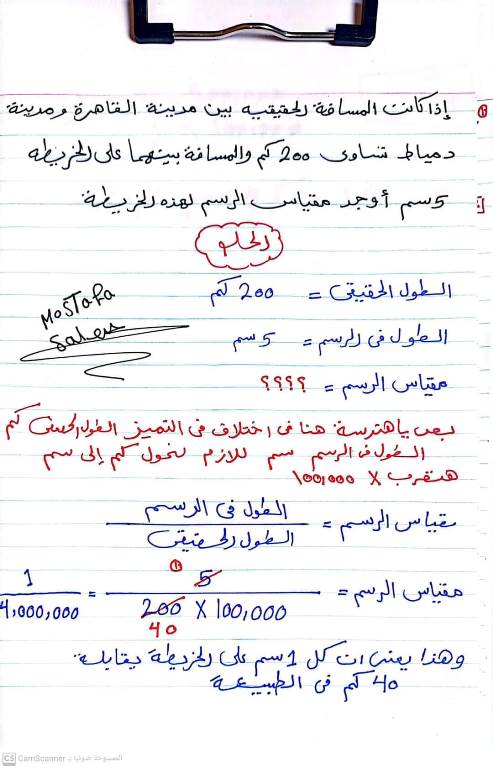 إذا كانت المسافة الحقيقيه بين مدينة القاهرة ومدينة
دمياط تساوى 200 كم والمسافة بينهما على الخريطه
5 سم أوجد مقياس الرسم لهذه الخريطة
الحل
الطول الحقيقى = 200 كم
MOSTAFA
Salem
الطول فى الرسم = 5 سم
مقياس الرسم = ؟؟؟؟
بص ياهندسة هنا فى اختلاف فى التميز الطول الحقيقى كم
الطول فى الرسم سم لازم نحول كم إلى سم
هنضرب X 100,000
مقياس الرسم = الطول فى الرسم / الطول الحقيقى
مقياس الرسم = 5 / 200 X 100,000 = 1 / 4,000,000
1
40
وهذا يعنى ان كل 1 سم على الخريطة يقابله
40 كم فى الطبيعة
الممسوحة ضوئيا بـ CamScanner
CS